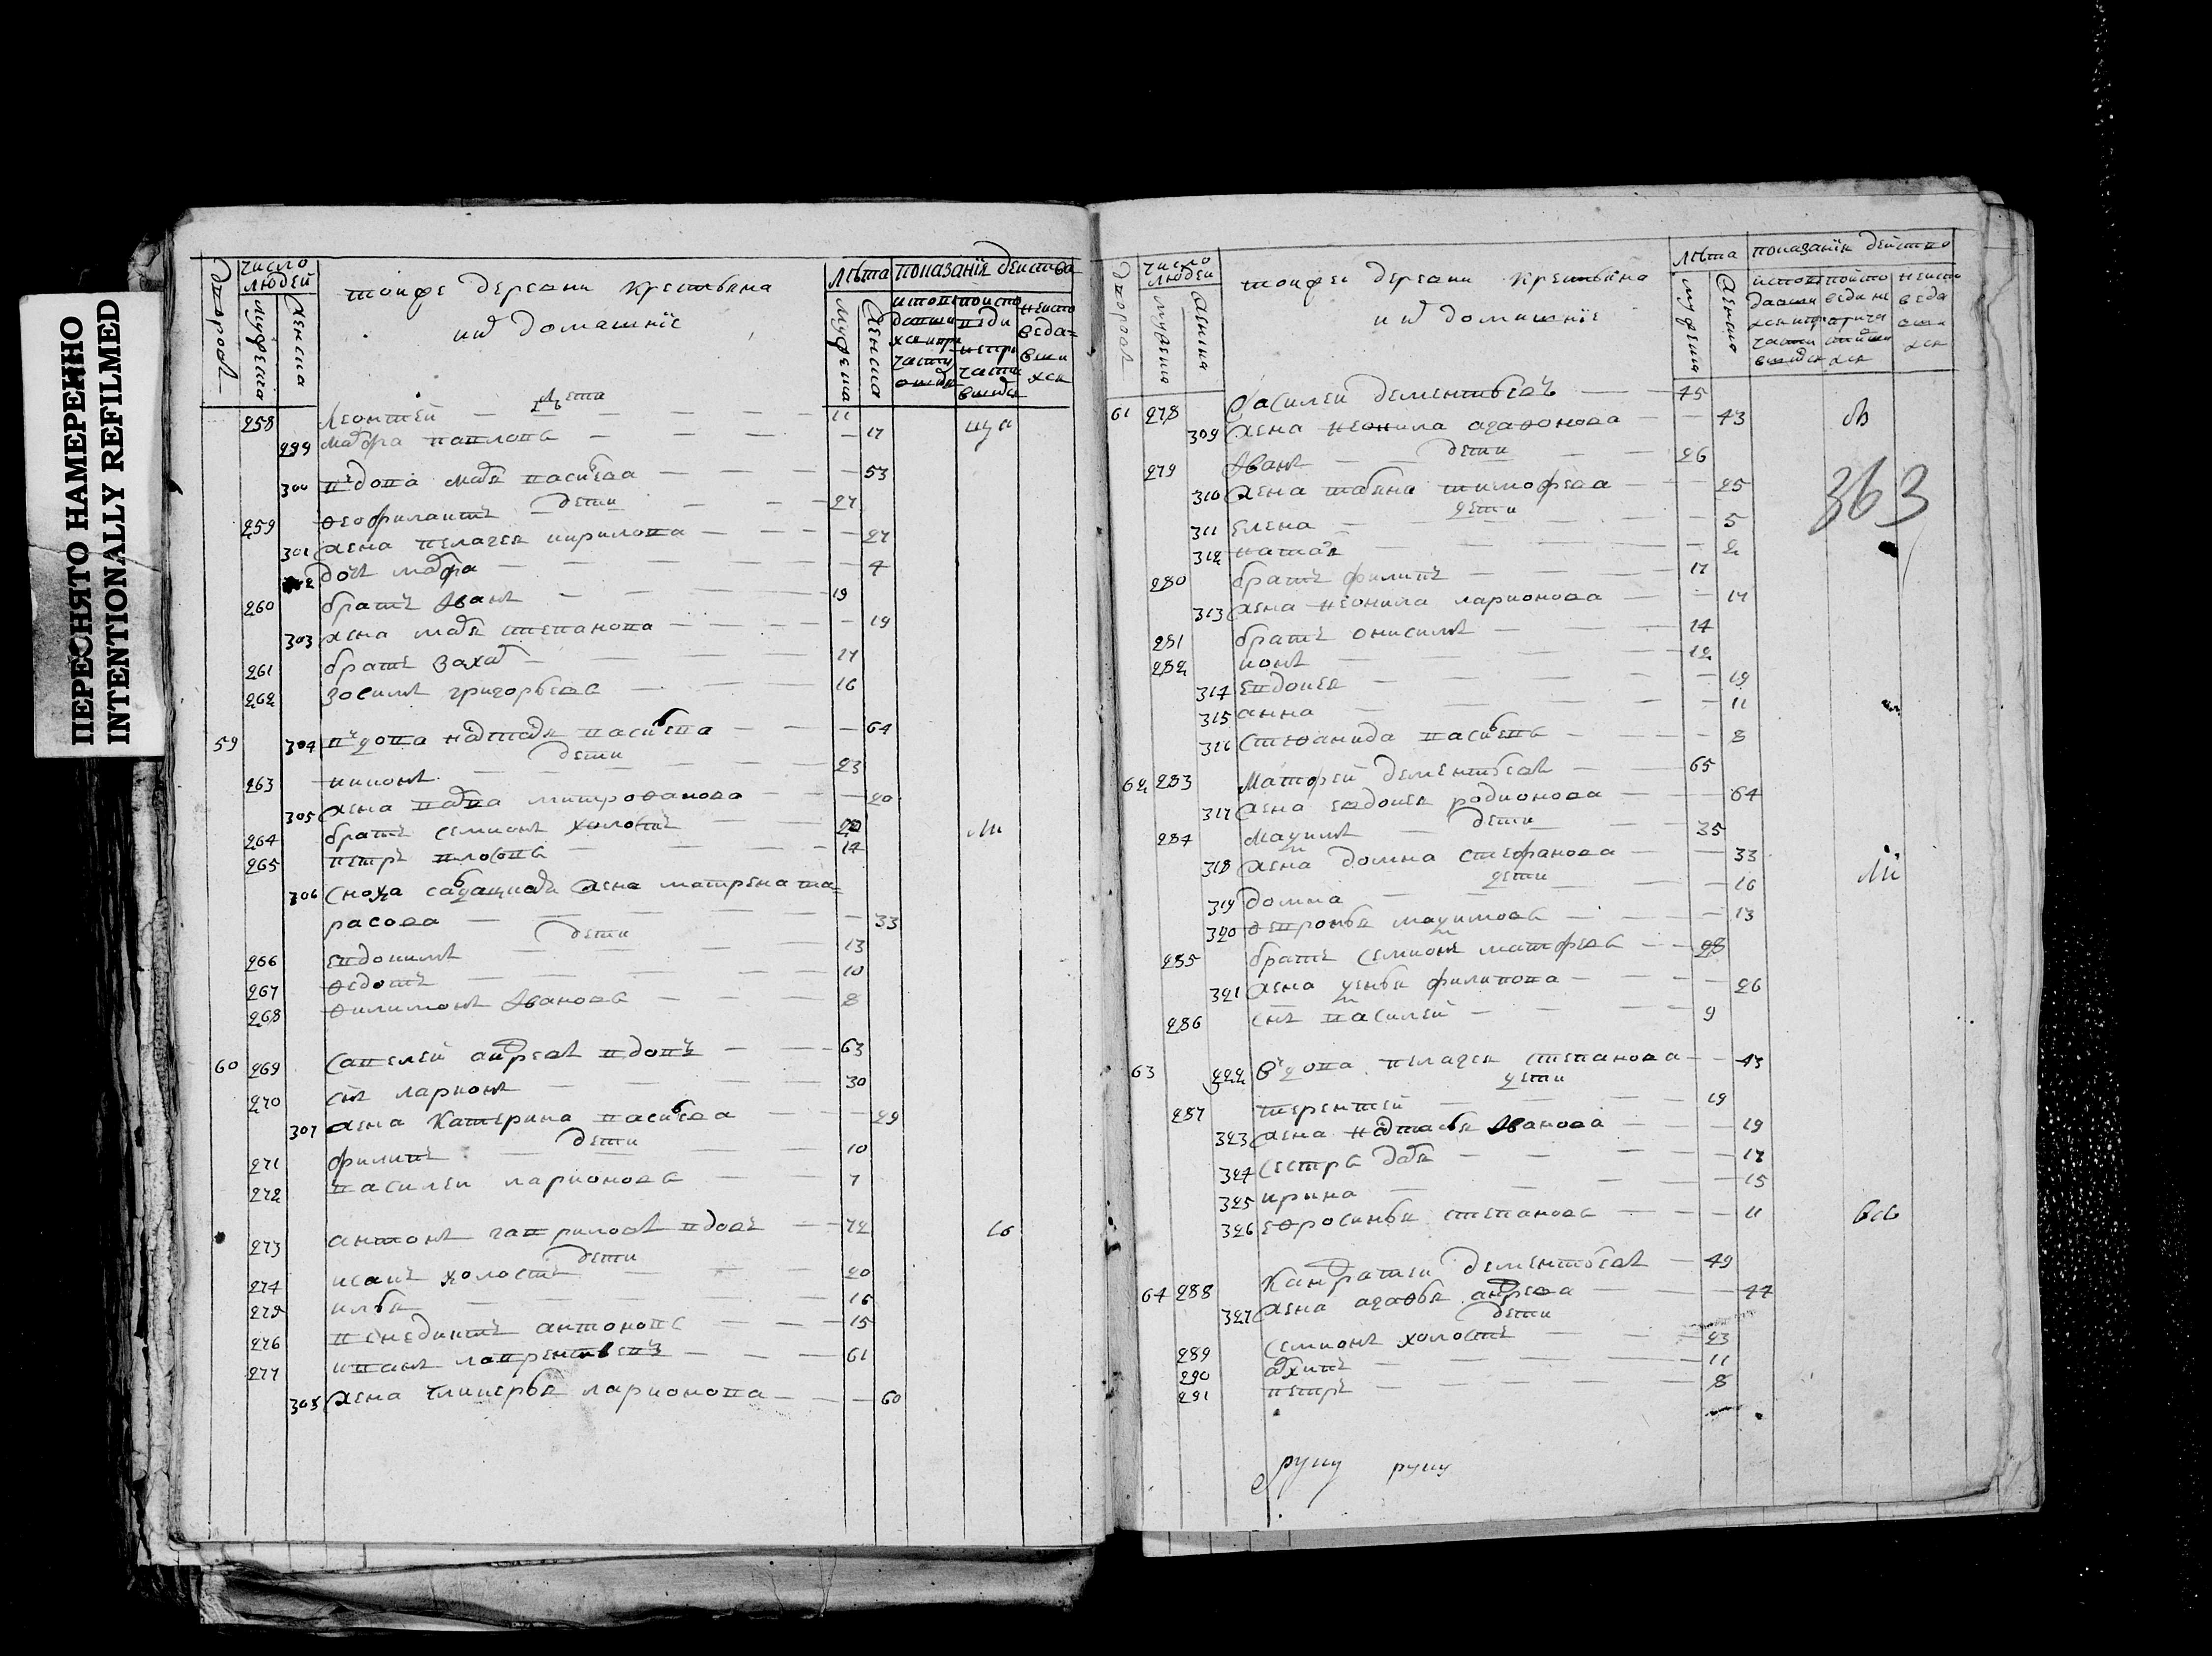 ПЕРЕСНЯТО НАМЕРЕННО
INTENTIONALLY REFILMED
число людей
лѣта показанїе действа
мужеска
женска
тоиже деревни крестьяна
ихъ домашнїе
дѣти
258 Леонтей 11
299 марѳа павлова 17
300 вдова марья васильева 53
дети
259 ѳеофилактъ 27
301 жена пелагея кирилова 27
дочь марѳа 4
260 братъ Иванъ 19
303 жена марья степанова 19
261 братъ Захаръ 17
262 Зосимъ григорьевы 16
59 304 вдова настасья васильева 64
дети
263 никонъ 23
305 жена варвара митрофанова 20
264 братъ семионъ холостъ
265 петръ власовы 14
306 сноха салдацкая жена матрена та=
расова 33
дети
266 евдокимъ 13
267 ѳедотъ 10
268 ѳилимонъ Ивановы 8
60 269 Савелей андреевъ вдовъ 63
270 сынъ ларионъ 30
307 жена катерина васильева 29
дети
271 филипъ 10
272 василеи ларионовы 7
273 антонъ гавриловъ вдовъ 72
дети
274 исакъ холостъ 20
275 илья 16
276 венедиктъ антоновы 15
277 иванъ лаврентьевъ 61
308 жена гликерья ларионова 60
число людей
лѣта показанїя действо
мужеска
женска
тоижеи деревни крестьяна
ихъ домашнїе
363
61 278 Василеи дементьевъ 45
309 жена неонила агафонова 43
дети
279 Иванъ 26
310 жена татьяна тимофеева 25
дети
311 елена 5
312 наталья 2
280 братъ филипъ 17
313 жена неонила ларионова 17
281 братъ онисимъ 14
282 кононъ 12
314 евдокея 19
315 анна 11
316 стефанида васильевы 8
62 283 Матфей дементьевъ 65
317 жена евдокея родионова 64
дети
284 Максимъ 35
318 жена домна стефанова 33
дети
319 домна 16
320 ѳетронья максимовы 13
285 братъ семионъ матфеевъ 28
321 жена ксенья филипова 26
286 сынъ василей 9
63 322 вдова пелагея степанова 43
дети
287 терентей 19
323 жена настасья Иванова 19
324 сестры дарья 17
325 ирина 15
326 ефросинья степановы 11
64 288 Кандратей дементьевъ 49
327 жена агафья андреева 44
дети
289 семионъ холостъ 23
290 архипъ 11
291 петръ 8
руку руку